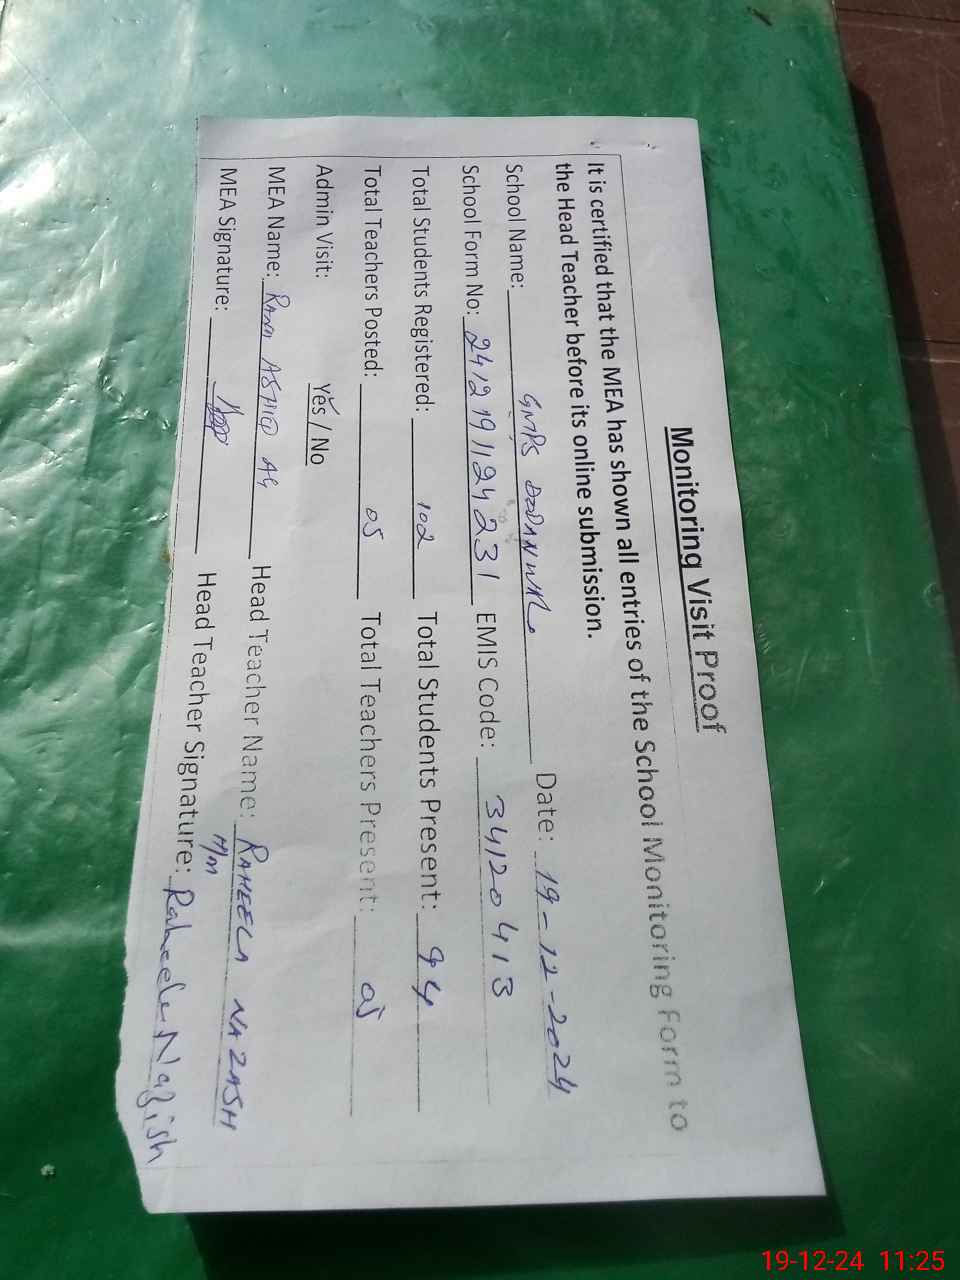 Monitoring Visit Proof
It is certified that the MEA has shown all entries of the School Monitoring Form to
the Head Teacher before its online submission.
School Name: GMPS DODANWALI Date: 19-12-2024
School Form No: 2412191124231 EMIS Code: 34120413
Total Students Registered: 102 Total Students Present: 94
Total Teachers Posted: 05 Total Teachers Present: 05
Admin Visit: Yes / No
MEA Name: RANA ASHIQ Head Teacher Name: RAHEELA NAZASH
MEA Signature: Head Teacher Signature: Raheela Nazish
19-12-24 11:25